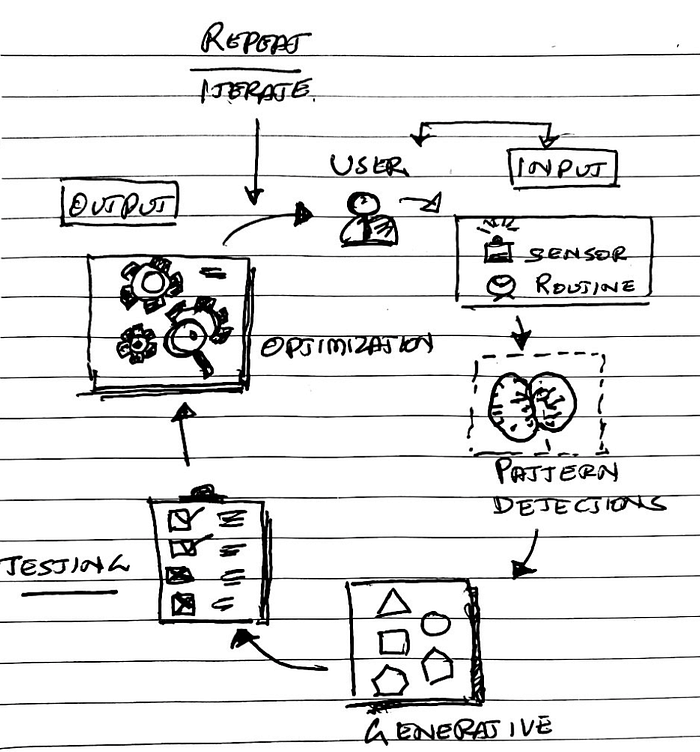 REPEAT
ITERATE.
USER
INPUT
OUTPUT
SENSOR
ROUTINE
OPTIMIZATION
PATTERN
DETECTIONS
TESTING
GENERATIVE